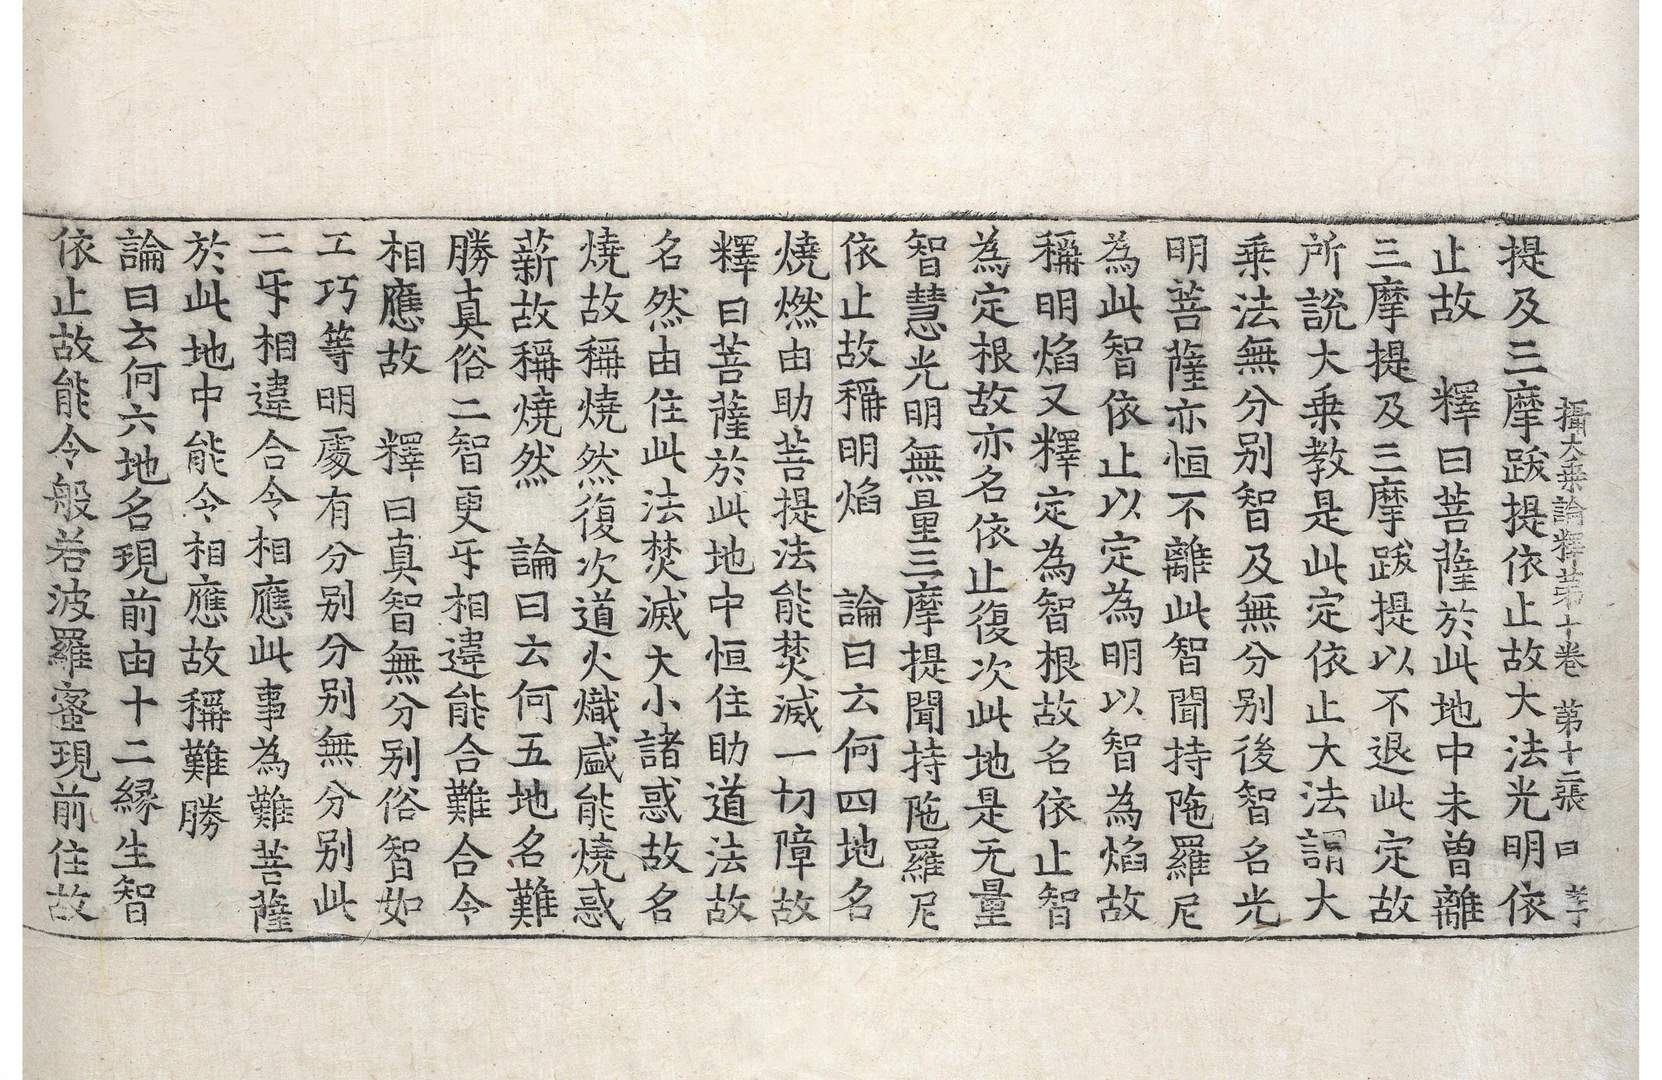 攝大乗論釋第十卷 第十二張 曰 孝
提及三摩跋提依止故大法光明依
止故 釋曰菩薩於此地中未曽離
三摩提及三摩跋提以不退此定故
所說大乗教是此定依止大法謂大
乗法無分别智及無分别後智名光
明菩薩亦恒不離此智聞持陁羅尼
為此智依止以定為明以智為焰故
稱明焰又釋定為智根故名依止智
為定根故亦名依止復次此地是无量
智慧光明無量三摩提聞持陁羅尼
依止故稱明焰 論曰云何四地名
燒燃由助菩提法能焚滅一切障故
釋曰菩薩於此地中恒住助道法故
名然由住此法焚滅大小諸惑故名
燒故稱燒然復次道火熾盛能燒惑
薪故稱燒然 論曰云何五地名難
勝真俗二智更㸦相違能合難合令
相應故 釋曰真智無分别俗智如
工巧等明處有分别分别無分别此
二㸦相違合令相應此事為難菩薩
於此地中能令相應故稱難勝
論曰云何六地名現前由十二縁生智
依止故能令般若波羅蜜現前住故